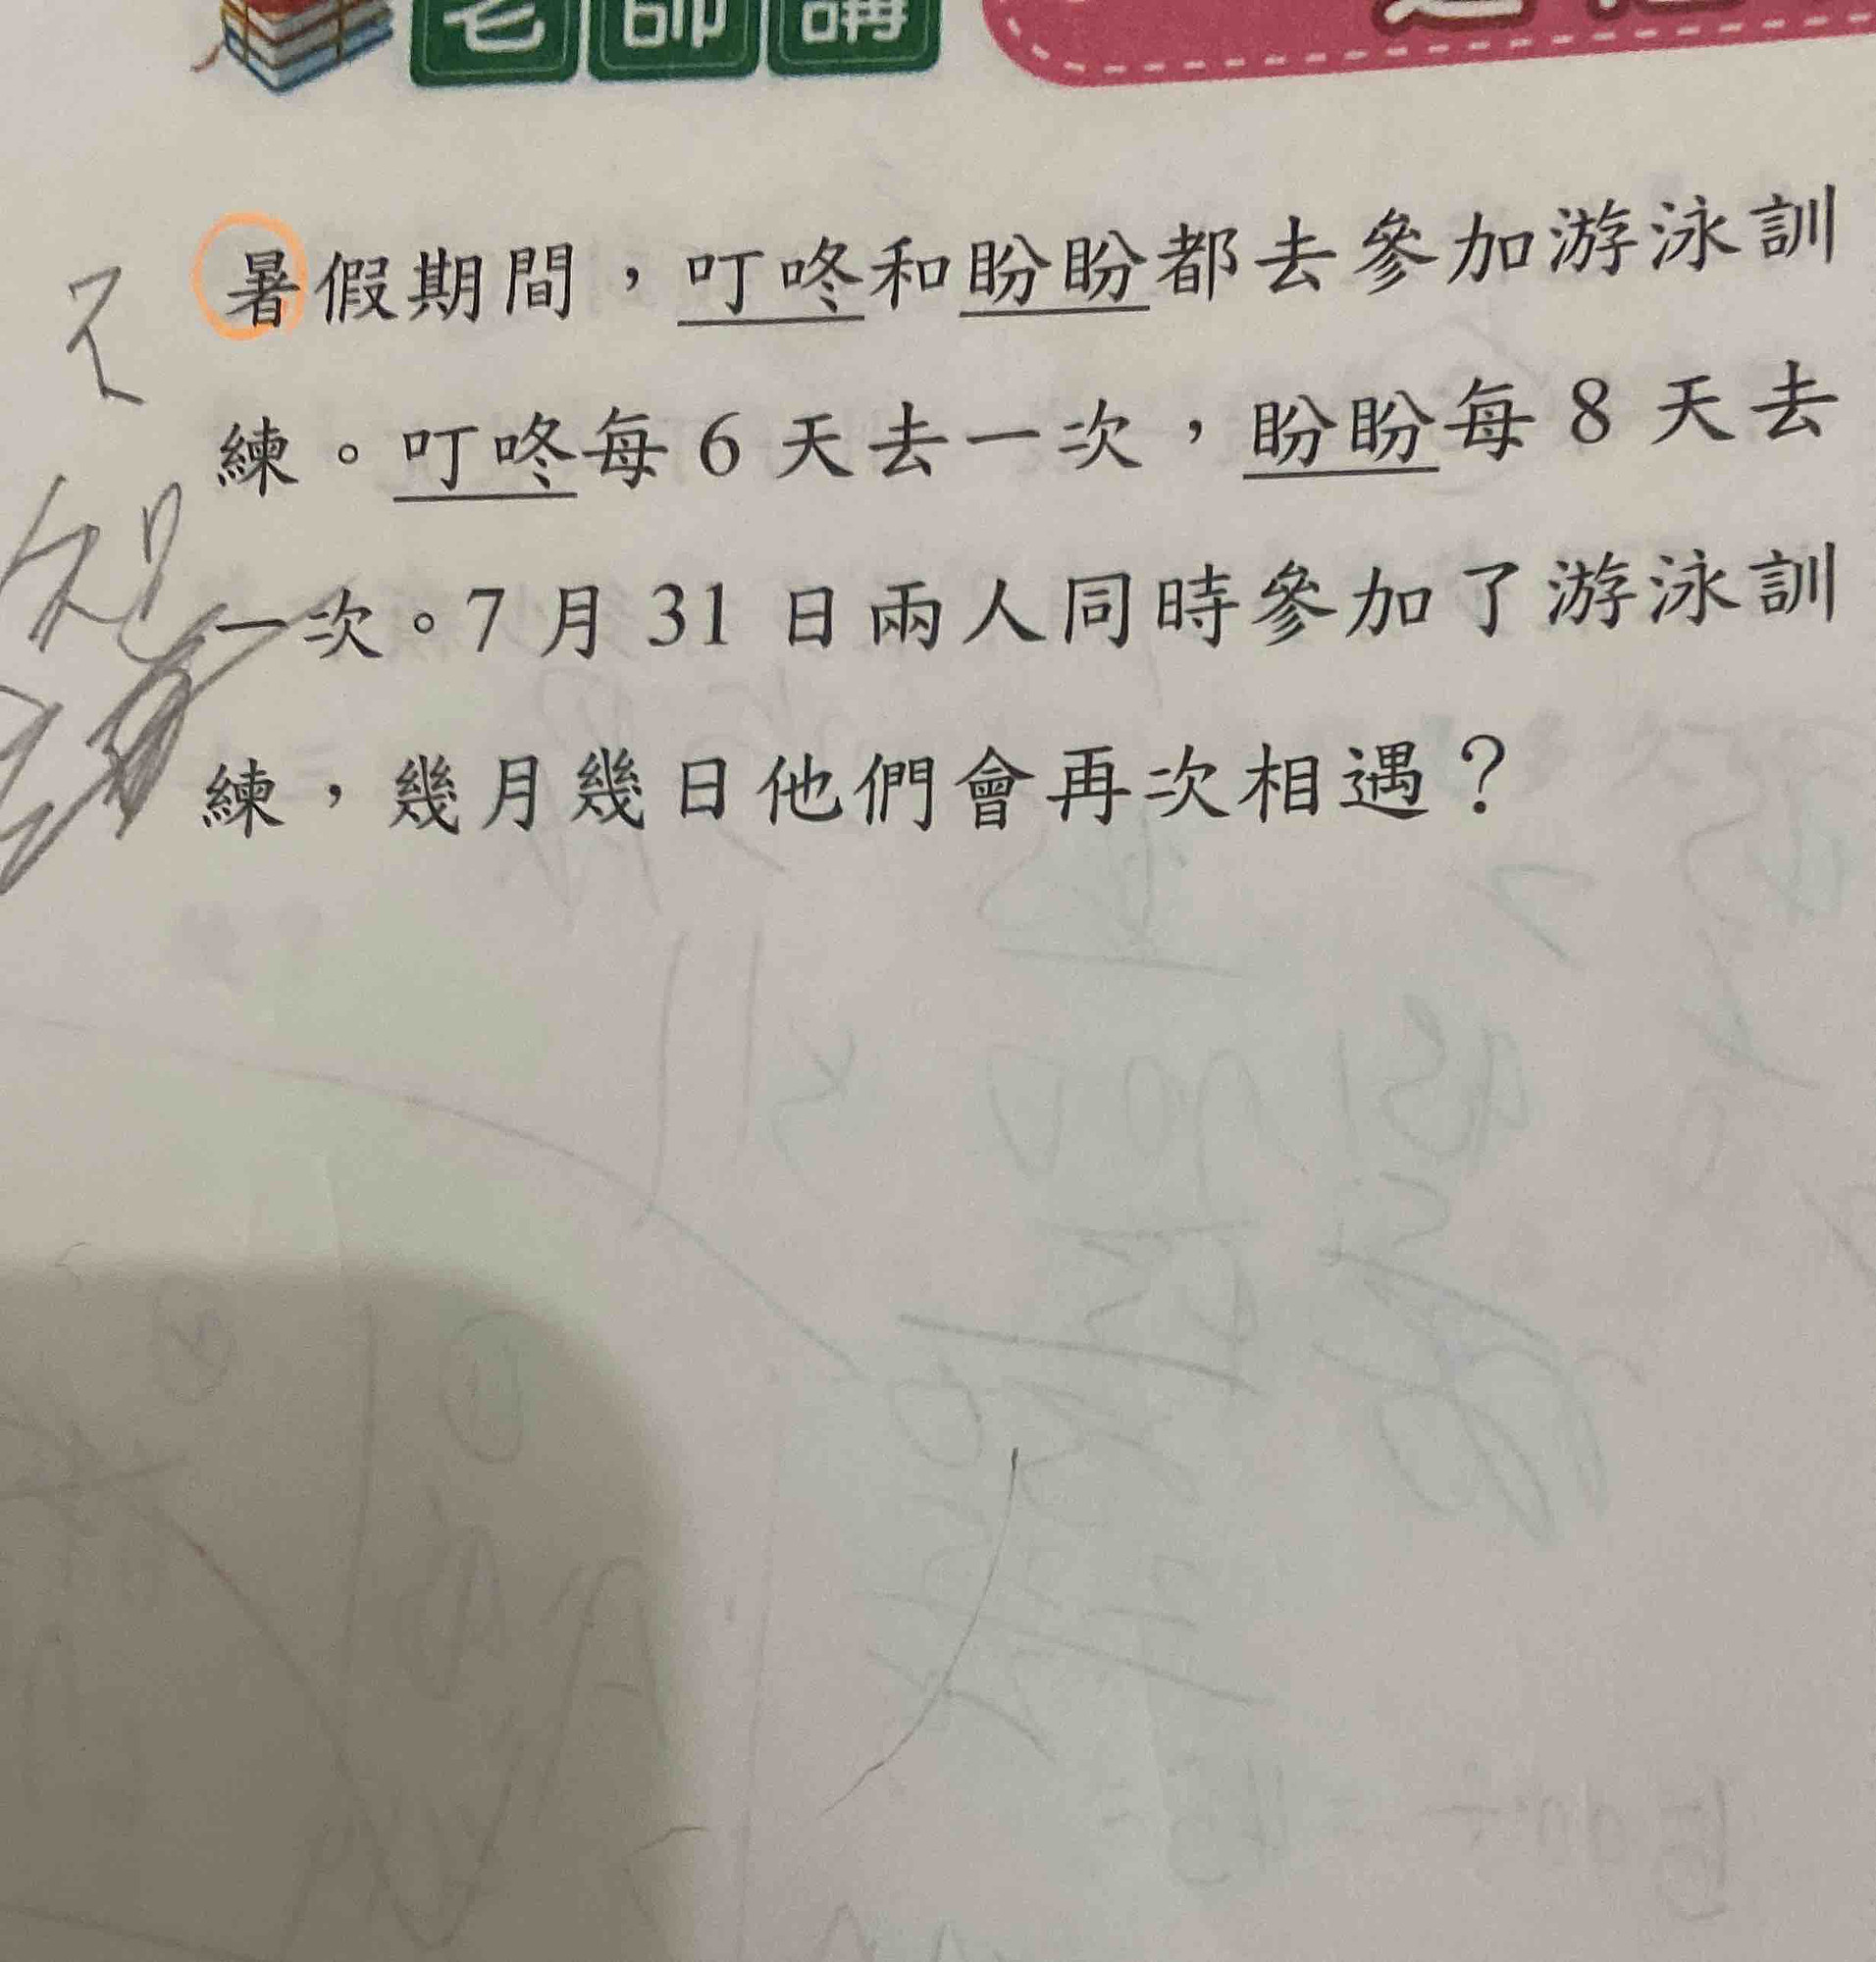 老師講
暑假期間，叮咚和盼盼都去參加游泳訓
練。叮咚每6天去一次，盼盼每8天去
一次。7月31日兩人同時參加了游泳訓
練，幾月幾日他們會再次相遇？